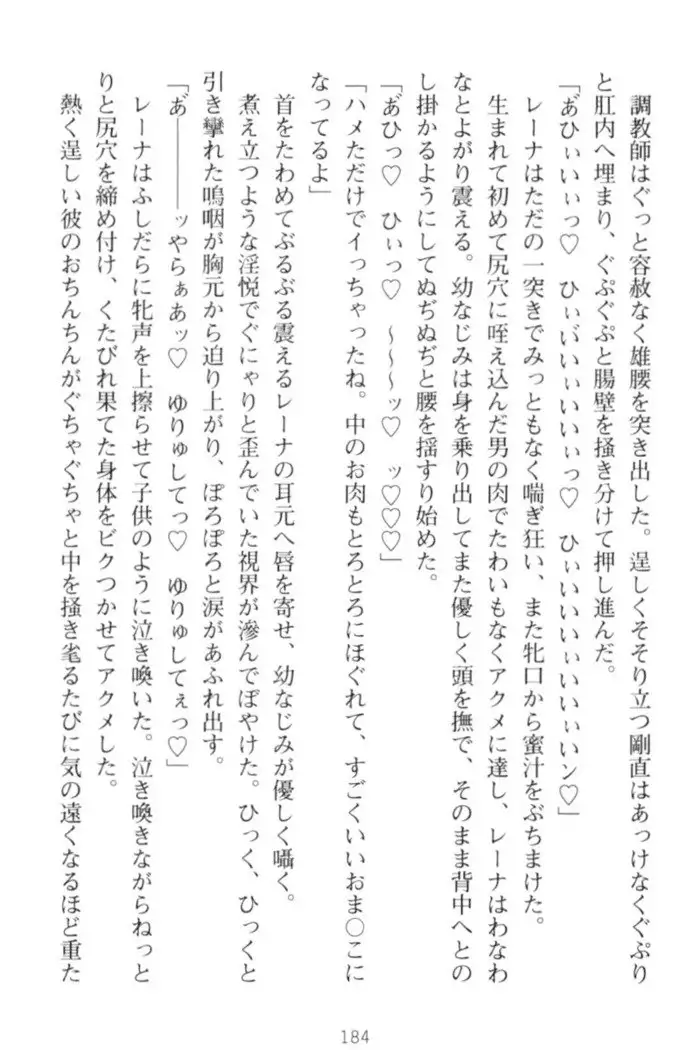 調教師はぐっと容赦なく雄腰を突き出した。逞しくそそり立つ剛直はあっけなくぐぷり
と肛内へ埋まり、ぐぷぐぷと腸壁を掻き分けて押し進んだ。
「あ゛ひぃいぃっ♡　ひぃい゛ぃいぃいいぃっ♡　ひぃいいいぃいいぃいン♡」
レーナはただの一突きでみっともなく喘ぎ狂い、また牝口から蜜汁をぶちまけた。
生まれて初めて尻穴に咥え込んだ男の肉でたわいもなくアクメに達し、レーナはわなわ
なとよがり震える。幼なじみは身を乗り出してまた優しく頭を撫で、そのまま背中へとの
し掛かるようにしてぬぢぬぢと腰を揺すり始めた。
「あ゛ひっ♡　ひぃっ♡　～～～ッ♡　ッ♡♡♡」
「ハメただけでイっちゃったね。中のお肉もとろとろにほぐれて、すごくいいおま○こに
なってるよ」
首をたわめてぶるぶる震えるレーナの耳元へ唇を寄せ、幼なじみが優しく囁く。
煮え立つような淫悦でぐにゃりと歪んでいた視界が滲んでぼやけた。ひっく、ひっくと
引き攣れた嗚咽が胸元から迫り上がり、ぽろぽろと涙があふれ出す。
「あ゛――――ッやらぁあッ♡　ゆりゅしてっ♡　ゆりゅしてぇっ♡」
レーナはふしだらに牝声を上擦らせて子供のように泣き喚いた。泣き喚きながらねっと
りと尻穴を締め付け、くたびれ果てた身体をビクつかせてアクメした。
熱く逞しい彼のおちんちんがぐちゃぐちゃと中を掻き毟るたびに気の遠くなるほど重た
184